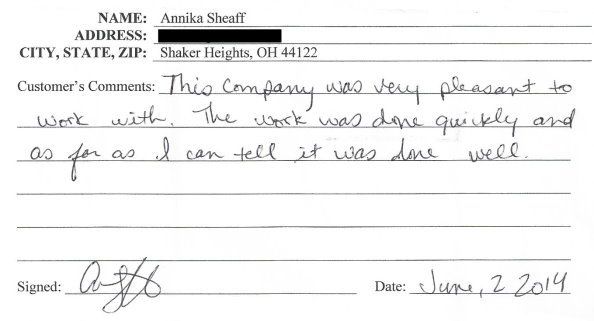 NAME: Annika Sheaff
ADDRESS:
CITY, STATE, ZIP: Shaker Heights, OH 44122
Customer's Comments: This Company was very pleasant to
work with. The work was done quickly and
as far as I can tell it was done well.
Signed:
Date: June, 2 2014